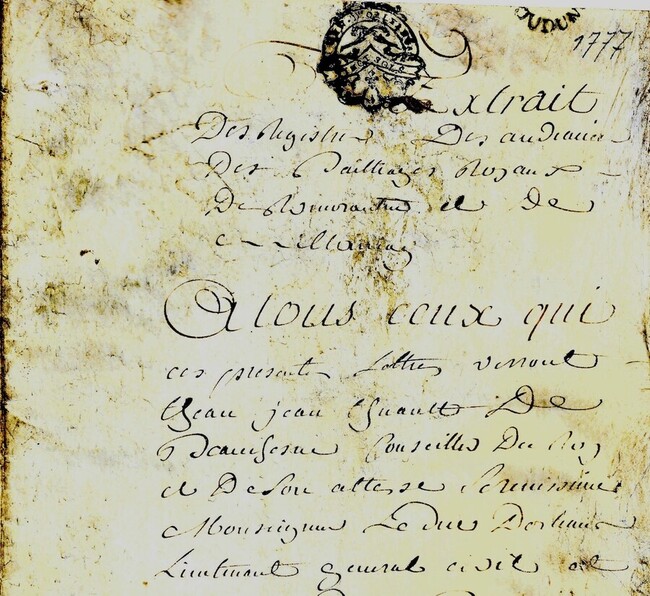 OUDUN
1777
Extrait
Des Registres Des audiances
Des Bailliages Royaux
De Romorantin et de
Millançay
A tous ceux qui
ces presentes Lettres verront
jean
De Beauchesne Conseiller Du Roy
et De Son altesse Serenissime
Monseigneur Le duc Dorleans
Lieutenant general civil et